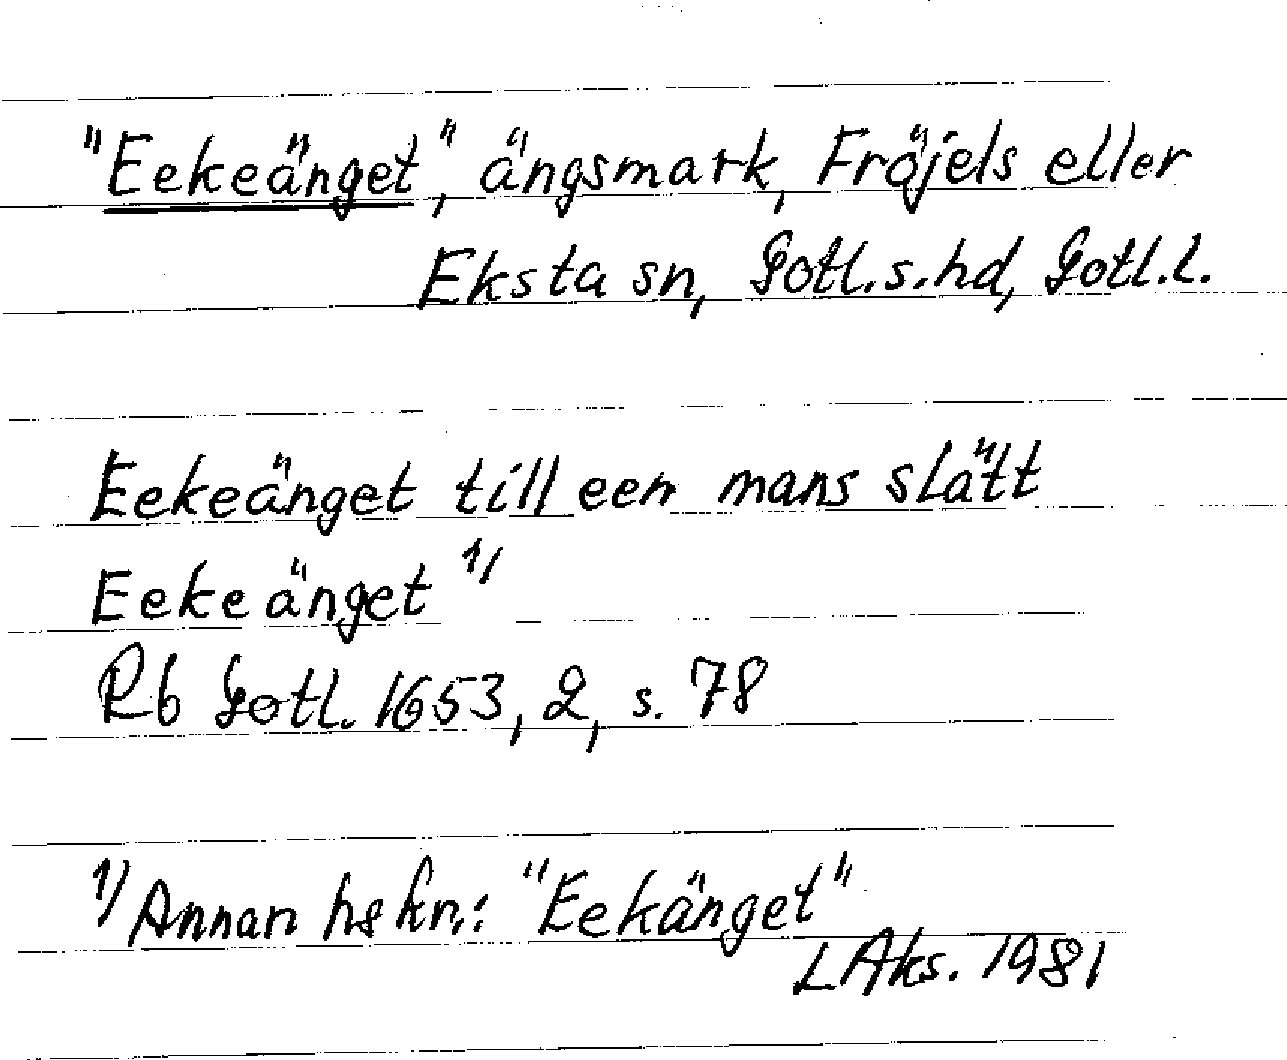 "Eekeänget", ängsmark, Fröjels eller
Eksta sn, Gotl.s.hd, Gotl.l.
Eekeänget till een mans slätt
Eekeänget 1/
Rb Gotl. 1653, 2, s. 78
1/ Annan hskr.: "Eekänget"
LAks. 1981